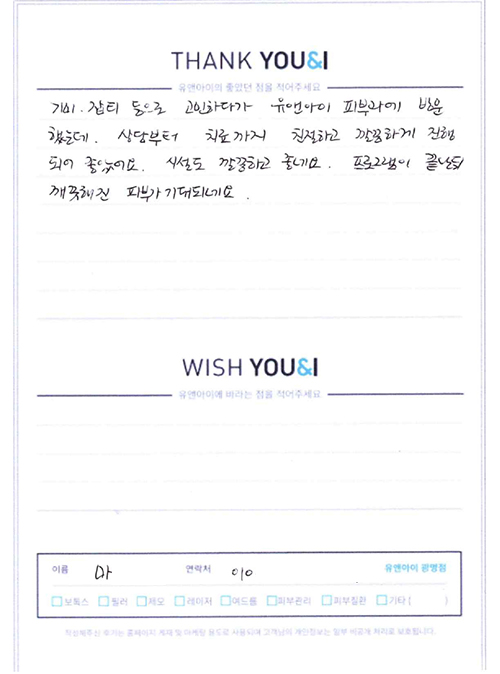 THANK YOU&I
유앤아이의 좋았던 점을 적어주세요
기미. 잡티 등으로 고민하다가 유앤아이 피부과에 방문
했는데. 상담부터 치료까지 친절하고 깔끔하게 진행
되어 좋았어요. 시설도 깔끔하고 좋네요. 프로그램이 끝난뒤
깨끗해진 피부가 기대되네요.
WISH YOU&I
유앤아이에 바라는 점을 적어주세요
이름 마 연락처 010 유앤아이 광명점
보톡스 필러 제모 레이저 여드름 피부관리 피부질환 기타 ( )
작성해주신 후기는 홈페이지 게재 및 마케팅 용도로 사용되며 고객님의 개인정보는 일부 비공개 처리로 보호됩니다.